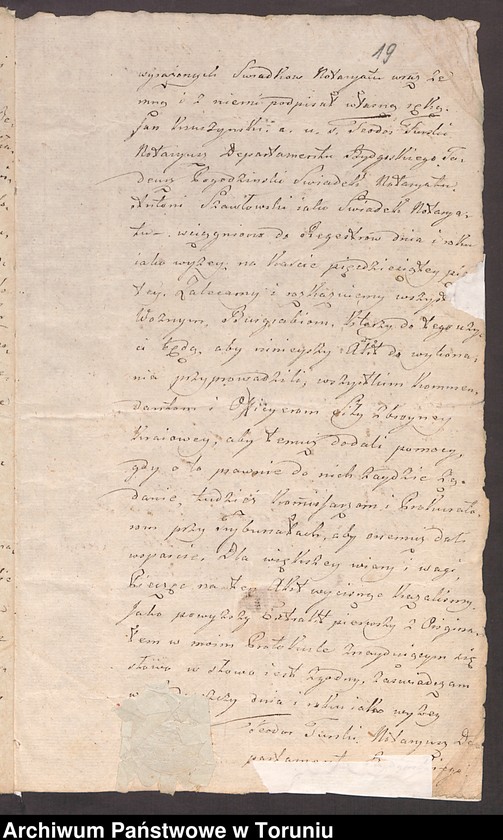 19
wyrażonych Swiadkow Notaryatu wraz ze
mną i z niemi podpisał własną ręką.
Jan a. u. s. Teodor Turski
Notaryusz Departamentu Bydgoskiego Ta-
deusz Pogodzinski Swiadek Notaryatu.
Antoni Szawłowski iako Swiadek Notarya-
tu - wciągniono do Regestrow dnia i roku
iako wyżey na karcie pięćdziesiątey pią-
tey. Zalecamy i rozkazuiemy wszyst
Woznym, Burgrabiom, ktorzy do tego uży-
ci będą, aby ninieyszy Akt do wykona-
nia przyprowadzili, wszystkim Kommen-
dantom i Officyerom siły zbroyney
kraiowey, aby temuż dodali pomocy,
gdy o to prawnie do nich zaydzie żą-
danie, tudzież Kommissarzom i Prokurato-
rom przy Trybunałach, aby onemuż dali
wsparcie. Dla większey wiary i wagi,
Pieczęć na ten Akt wycisnąć kazalismy.
Jako powyższy Extrakt pierwszy z Orygina-
łem w moim Protokule znayduiącym się
słowo w słowo iest zgodny, zaswiadczam
w dnia i roku iako wyżey
Teodor Turski Notaryusz De-
partament
Archiwum Państwowe w Toruniu